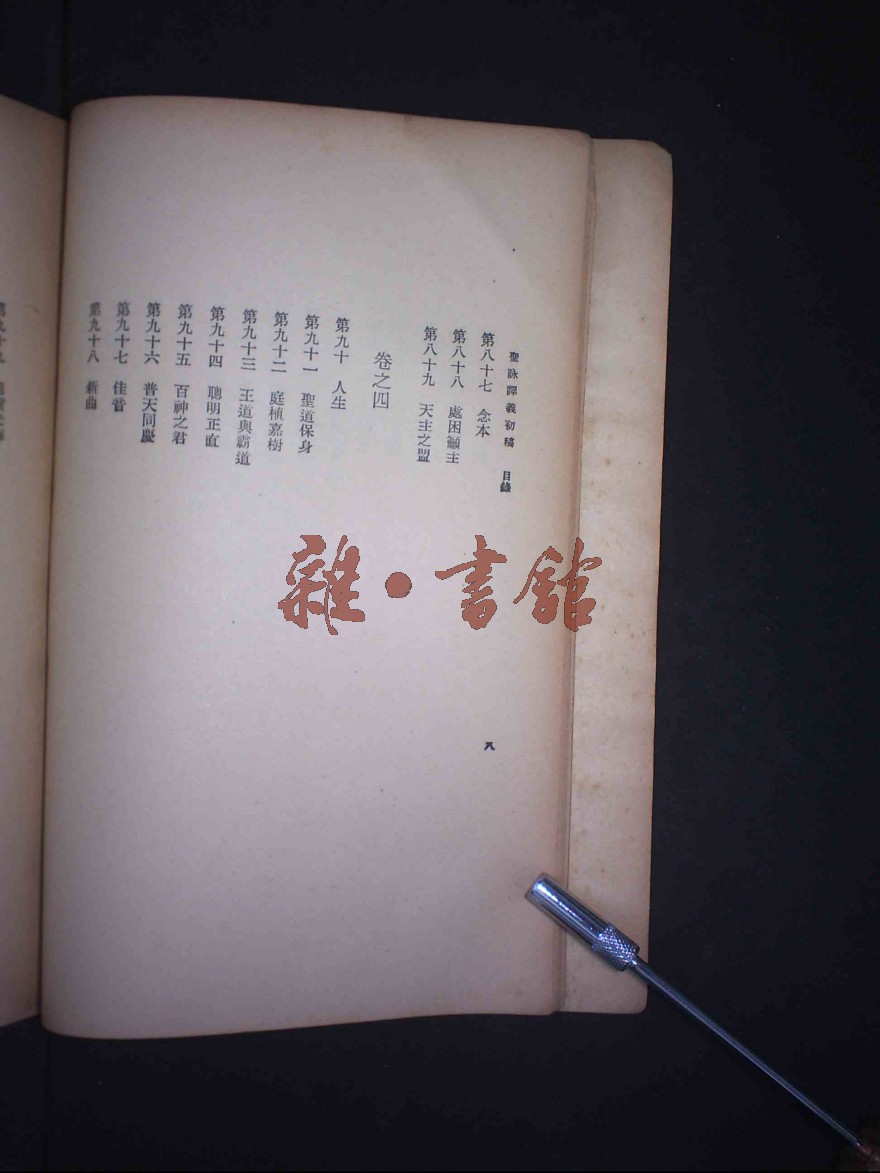 聖詠譯義初稿 目錄
第八十七 念本
第八十八 處困籲主
第八十九 天主之盟
卷之四
第九十 人生
第九十一 聖道保身
第九十二 庭植嘉樹
第九十三 王道與霸道
第九十四 聰明正直
第九十五 百神之君
第九十六 普天同慶
第九十七 佳音
第九十八 新曲
八
雜·書館